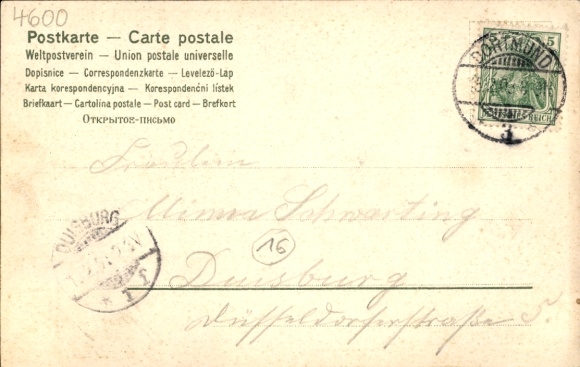 4600
Postkarte — Carte postale
Weltpostverein — Union postale universelle
Dopisnice — Correspondenzkarte — Levelező-Lap
Karta korespondencyjna — Korespondenční lístek
Briefkaart — Cartolina postale — Post card — Brefkort
Открытое-письмо
5
REICH
DORTMUND
Fräulein
Minna Schwarting
16
Duisburg
Düsseldorferstraße 5.
DUISBURG